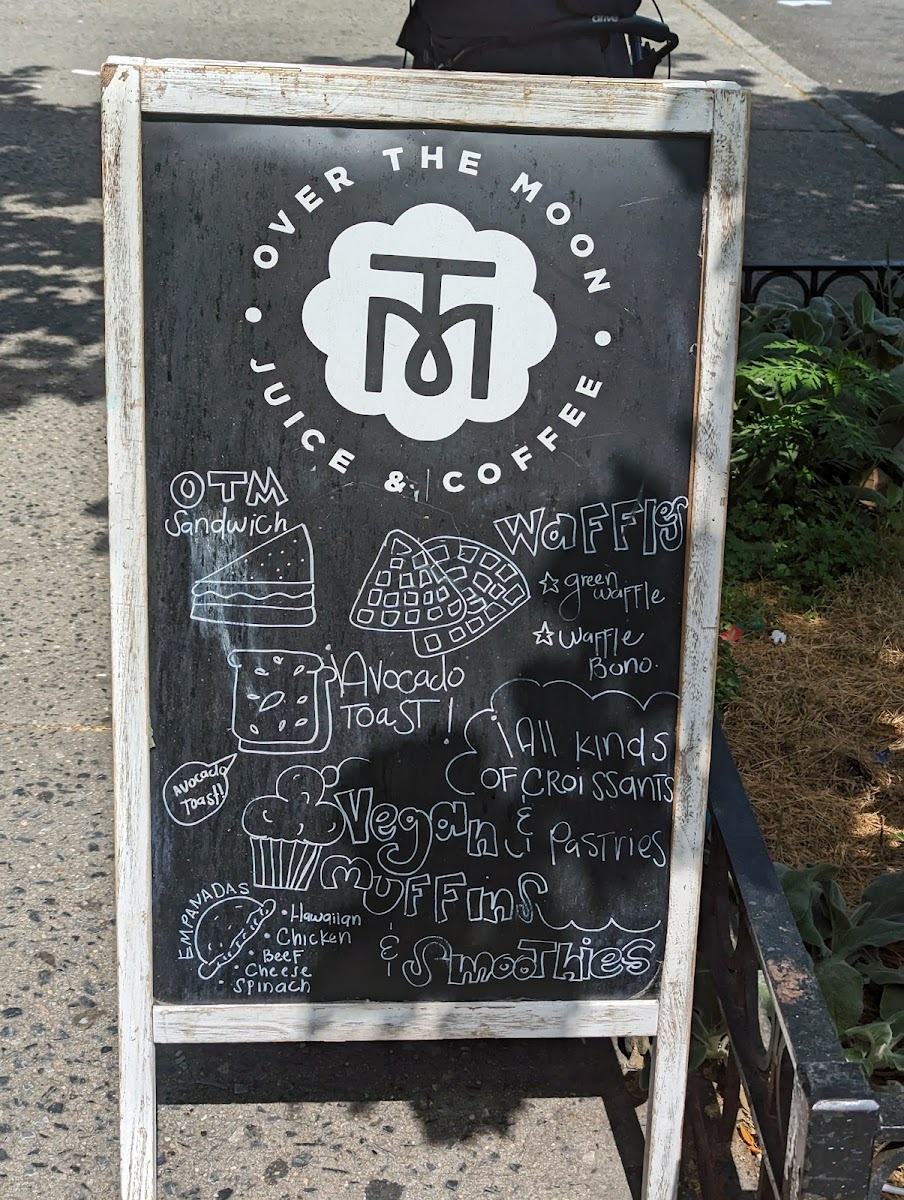 drive
OVER THE MOON
JUICE & COFFEE
TM
OTM
Sandwich
Waffles
☆ green
waffle
☆ Waffle
Bono.
¡Avocado
Toast!
Avocado
Toast!!
¡All Kinds
OF Croissants
& Pastries
Vegan
muffins
& Smoothies
EMPANADAS
• Hawaiian
• Chicken
• Beef
• Cheese
• Spinach